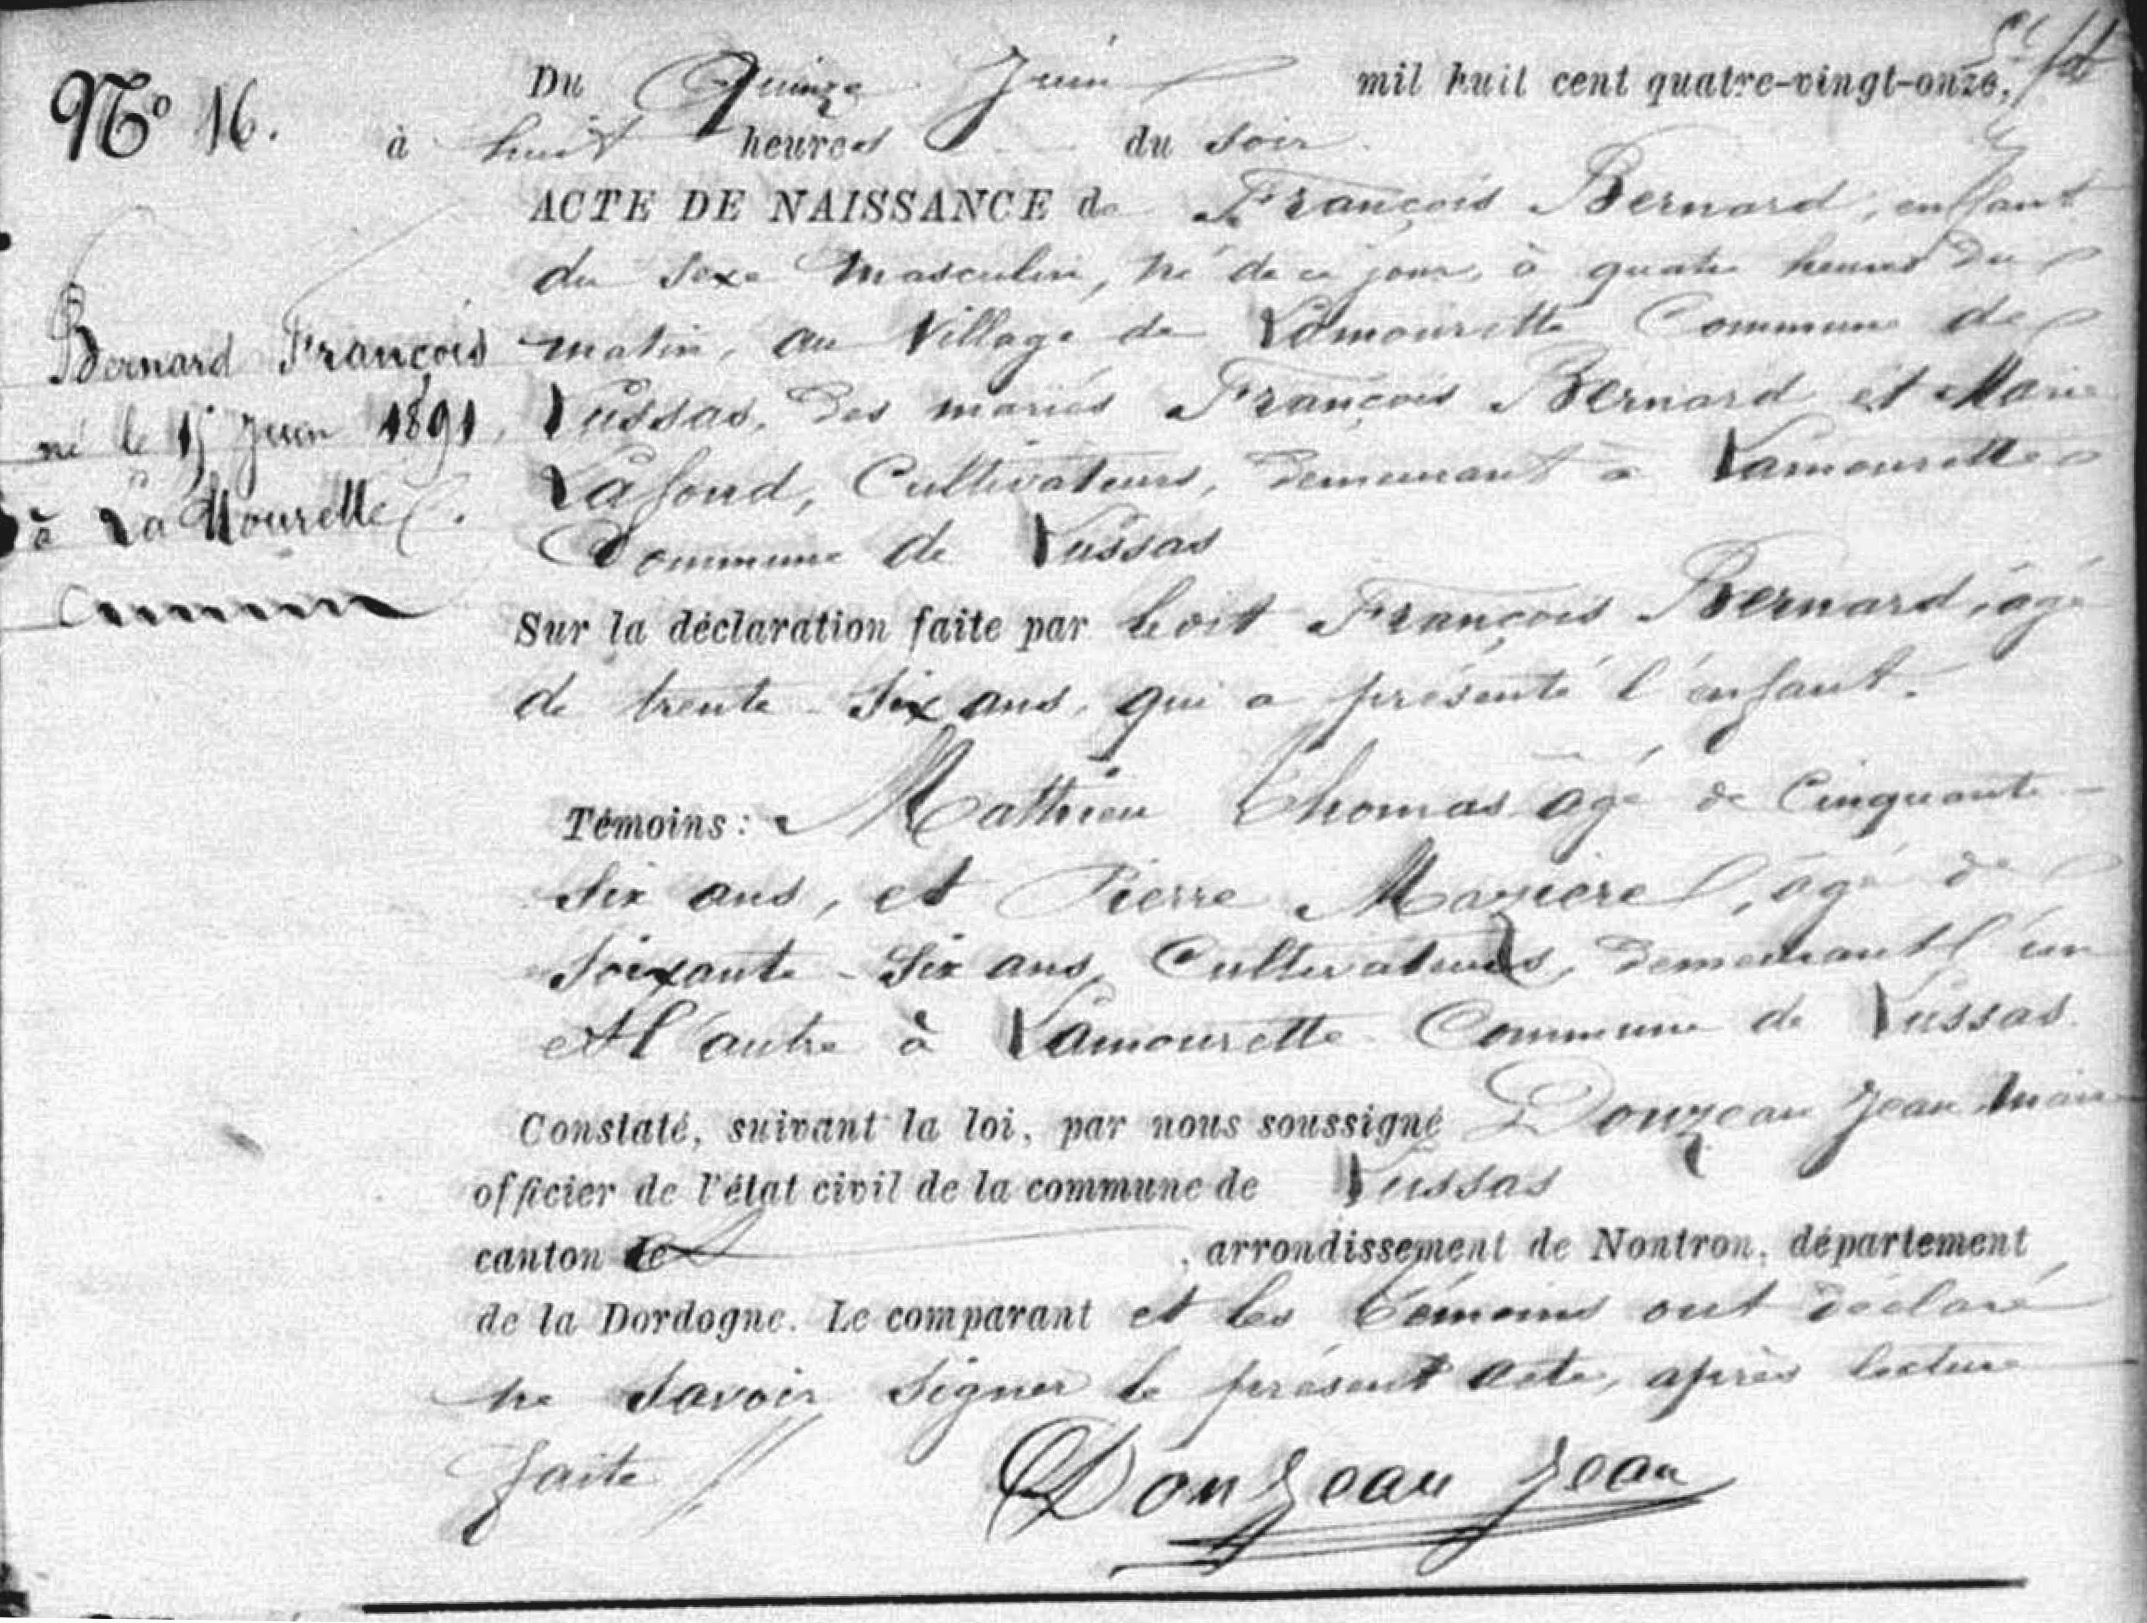 Nº 16.
Du Quinze Juin mil huit cent quatre-vingt-onze,
à huit heures du soir
ACTE DE NAISSANCE de François Bernard, enfant
du sexe masculin, né de ce jour, à quatre heures du
matin, au Village de Lamourette Commune de
Lussas, des mariés François Bernard et Marie
Lafond, Cultivateurs, demeurant à Lamourette
Commune de Lussas
Bernard François
né le 15 Juin 1891,
à La Mourette.
Sur la déclaration faite par ledit François Bernard, âgé
de trente-six ans, qui a présenté l'enfant.
Témoins: Mathieu Thomas âgé de Cinquante-
six ans, et Pierre Mazière, âgé de
soixante-six ans, Cultivateurs, demeurant l'un
et l'autre à Lamourette Commune de Lussas
Constaté, suivant la loi, par nous soussigné Douzeau Jean Maire
officier de l'état civil de la commune de Lussas
canton de , arrondissement de Nontron, département
de la Dordogne. Le comparant et les témoins ont déclaré
ne savoir signer le présent acte, après lecture
faite
Douzeau Jean